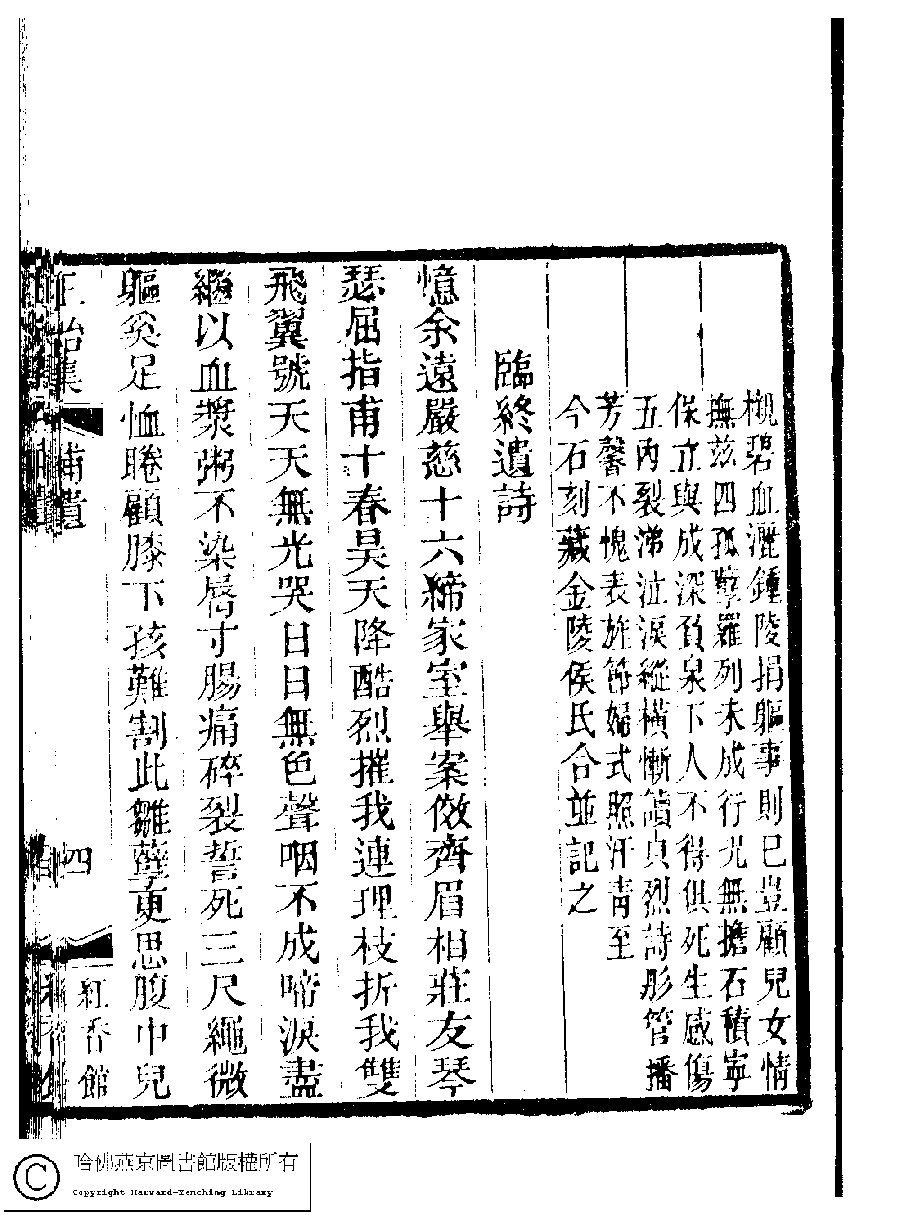 櫬碧血灑鍾陵捐軀事則已豈顧兒女情
撫兹四孤孽羅列未成行况無擔石積寧
保立與成深負泉下人不得俱死生感傷
五内裂涕泣淚縱橫慚讀貞烈詩彤管播
芳馨不愧表旌節婦式照汗青至
今石刻藏金陵侯氏合並記之
臨終遺詩
憶余遠嚴慈十六締家室舉案傚齊眉相莊友琴
瑟屈指甫十春昊天降酷烈摧我連理枝折我雙
飛翼號天天無光哭日日無色聲咽不成啼淚盡
繼以血漿粥不染唇寸腸痛碎裂誓死三尺繩微
軀奚足恤睠顧膝下孩難割此雛孽更思腹中兒
正始集
補遺
四
紅香館
哈佛燕京圖書館版權所有
Copyright Harvard-Yenching Library